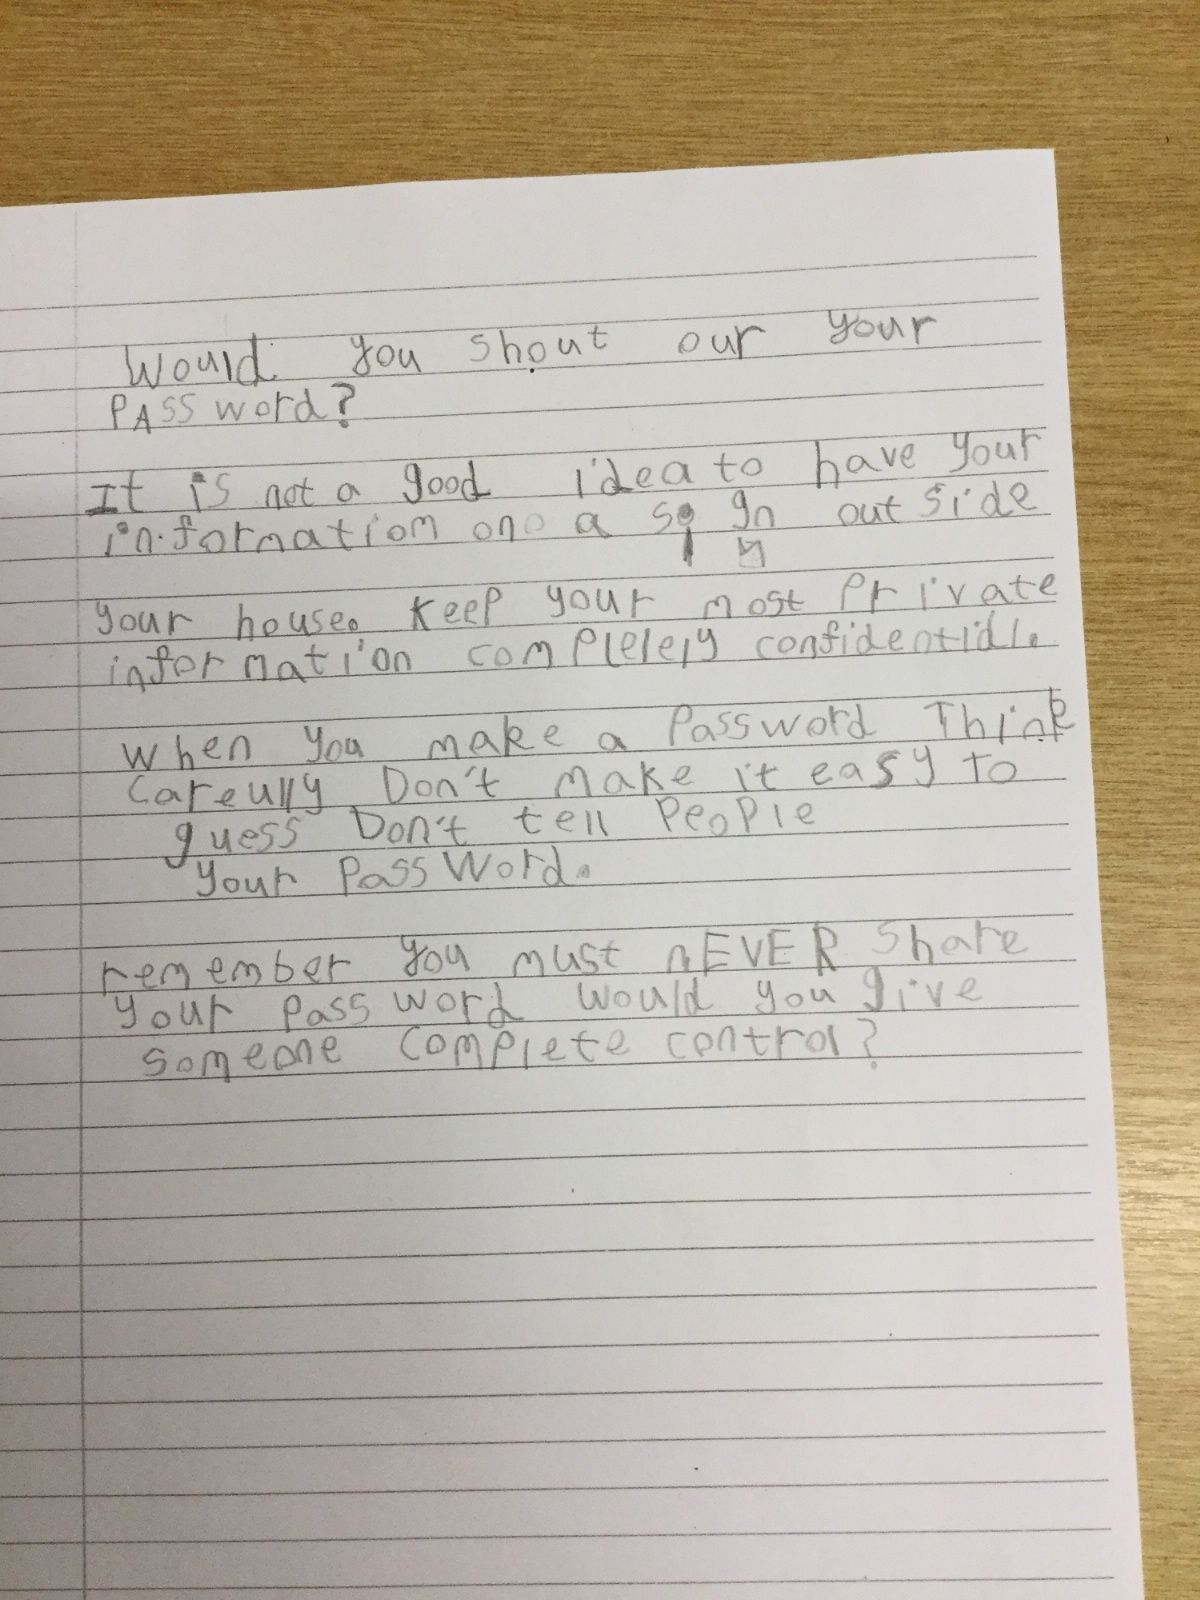 Would you shout our your
PASSword?
It is not a good idea to have your
information on a sign outside
your house. Keep your most Private
information complelely confidential.
When you make a Password Think
Careully Don't make it easy to
guess Don't tell People
your PassWord.
remember you must nEVER Share
your password would you give
someone complete control?